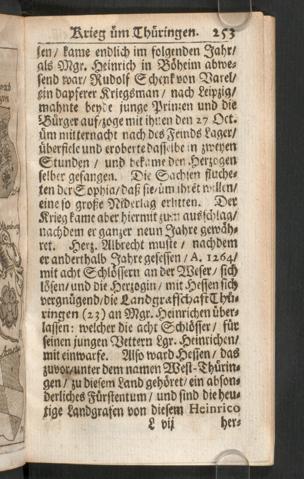 Krieg üm Thüringen. 253
sen/ kame endlich im folgenden Jahr/
als Mgr. Heinrich in Böheim abwe-
send war/ Rudolf Schenk von Varel/
ein dapferer Kriegsman/ nach Leipzig/
mahnte beyde junge Prinzen und die
Bürger auf/ zoge mit ihnen den 27 Oct.
üm mitternacht nach des Feinds Lager/
überfiele und eroberte dasselbe in zweyen
Stunden/ und bekame den Herzogen
selber gefangen. Die Sachsen fluche-
ten der Sophia/ daß sie/ üm ihret willen/
eine so große Niderlag erlitten. Der
Krieg kame aber hiermit zum ausschlag/
nachdem er ganzer neun Jahre gewäh-
ret. Herz. Albrecht muste/ nachdem
er anderthalb Jahre gesessen/ A. 1264/
mit acht Schlössern an der Weser/ sich
lösen/ und die Herzogin/ mit Hessen sich
vergnügend/ die Landgrafschaft Thü-
ringen (23) an Mgr. Heinrichen über-
lassen: welcher die acht Schlösser/ für
seinen jungen Vettern Lgr. Heinrichen/
mit einwarfe. Also ward Hessen/ das
zuvor/ unter dem namen West-Thürin-
gen/ zu diesem Land gehöret/ ein abson-
derliches Fürstentum/ und sind die heu-
tige Landgrafen von diesem Heinrico
L vij her-